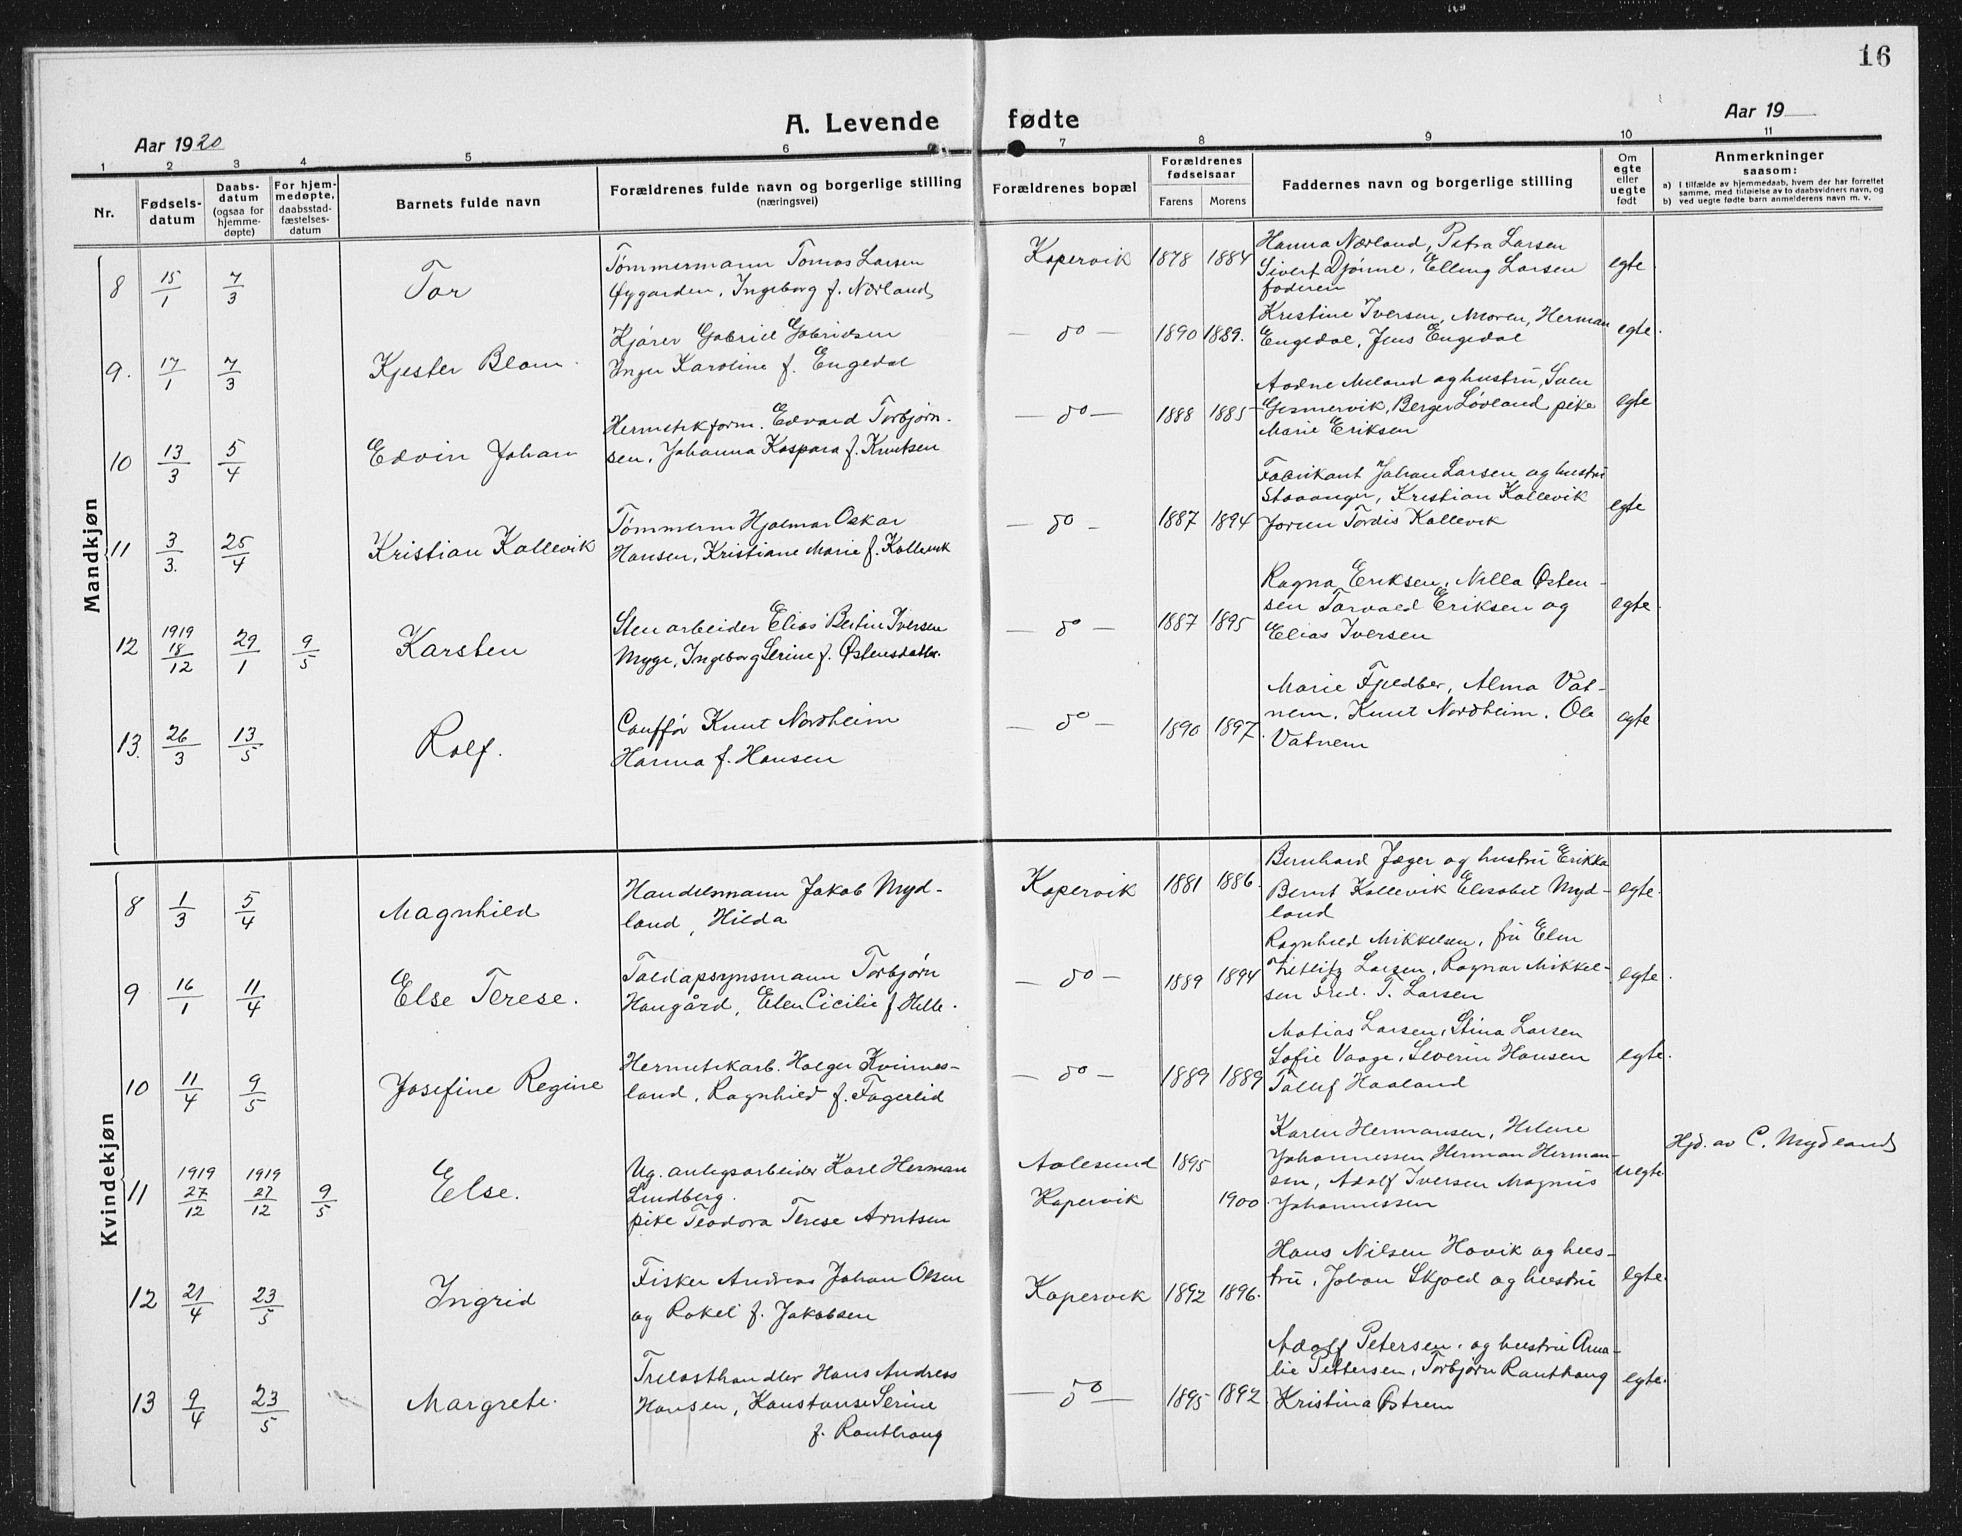 16
A. Levende fødte
Aar 1920
Aar 19
1 2 3 4 5 6 7 8 9 10 11
Nr.
Fødsels-
datum
Daabs-
datum
(ogsaa for
hjemme-
døpte)
For hjem-
medøpte,
daabsstad-
fæstelses-
datum
Barnets fulde navn
Forældrenes fulde navn og borgerlige stilling
(næringsvei)
Forældrenes bopæl
Forældrenes
fødselsaar
Farens Morens
Faddernes navn og borgerlige stilling
Om
egte
eller
uegte
født
Anmerkninger
saasom:
a) I tilfælde av hjemmedaab, hvem der har forrettet
samme, med tilføielse av to daabsvidners navn, og
b) ved uegte fødte barn anmelderens navn m. v.
Mandkjøn
8 15/1 7/3 Tor
Tømmermann Tomas Larsen
Øygarden, Ingeborg f. Nærland
Kopervik 1878 1884
Hanna Nærland, Petra Larsen
Sivert Djönne, Elling Larsen
faderen
egte.
9. 17/1 7/3 Kjester Blom.
Kjører Gabriel Gabrielsen
Inger Karoline f. Engedal
— do — 1890 1889.
Kristine Iversen, Moren, Herman
Engedal, Jens Engedal
egte.
10 13/3 5/4 Edvin Johan
Hermetikform. Edvard Torbjørn-
sen, Johanna Kaspara f. Knutsen
— do — 1888 1885
Aadne Meland og hustru, Sven
Gesmervik, Berger Lövland, pike
Marie Eriksen
egte
11 3/3. 25/4 Kristian Kallevik
Tømmerm Hjalmar Oskar
Hansen, Kristiane Marie f. Kallevik
— do — 1887 1894
Fabrikant Johan Larsen og hustru
Stavanger, Kristian Kallevik
Jorun Tordis Kallevik
egte
12 1919 18/12 29/1 9/5 Karsten
Stenarbeider Elias Bertin Iversen
Myge, Ingeborg Serine f. Østensdatter.
— do — 1887 1895
Ragna Eriksen, Nilla Østen-
sen Torvald Eriksen og
Elias Iversen
egte.
13. 26/3 13/5 Rolf.
Couffør Knut Nordheim
Hanna f. Hansen
— do — 1890 1897.
Marie Fjeldber, Alma Vat-
nem, Knut Nordheim, Ole
Vatnem
egte
Kvindekjøn
8 1/3 5/4 Magnhild
Handelsmann Jakob Myd-
land, Hilda
Kopervik 1881 1886.
Bernhard Jæger og hustru Erikka
Bernt Kallevik Elisabet Myd-
land
egte.
9 16/1 11/4 Else Terese.
Toldopsynsmann Torbjørn
Haugård, Elen Cicilie f Hille.
— do — 1889 1894
Ragnhild Mikkelsen, fru Elen
Zetlitz Larsen, Ragnar Mikkel-
sen Fred. T. Larsen
egte.
10 11/4 9/5 Josefine Regine
Hermetikarb. Holger Kvinnes-
land, Ragnhild f. Fagerlid
— do — 1889 1889
Matias Larsen, Stina Larsen
Sofie Vaage, Severin Hansen
Tollef Haaland
egte.
11 1919 27/12 1919 27/12 9/5 Else.
Ug. anlegsarbeider Karl Herman
Lindberg.
pike Teodora Terese Arntsen
Aalesund 1895
Kopervik 1900
Karen Hermansen, Helene
Johannessen Herman Herman-
sen, Adolf Iversen Magnus
Johannessen
uegte
Hjd. av C. Mydland
12 21/4 23/5 Ingrid
Fisker Andreas Johan Olsen
og Rakel f. Jakobsen
Kopervik 1892 1896.
Hans Nilsen Hovik og hus-
tru, Johan Skjold og hustru
egte.
13 9/4 23/5 Margrete.
Trelasthandler Hans Andreas
Hansen, Konstanse Serine
f. Rauthaug
— do — 1895 1892
Adolf Petersen, og hustru Ama-
lie Pettersen, Torbjørn Rauthaug
Kristina Østrem
egte.